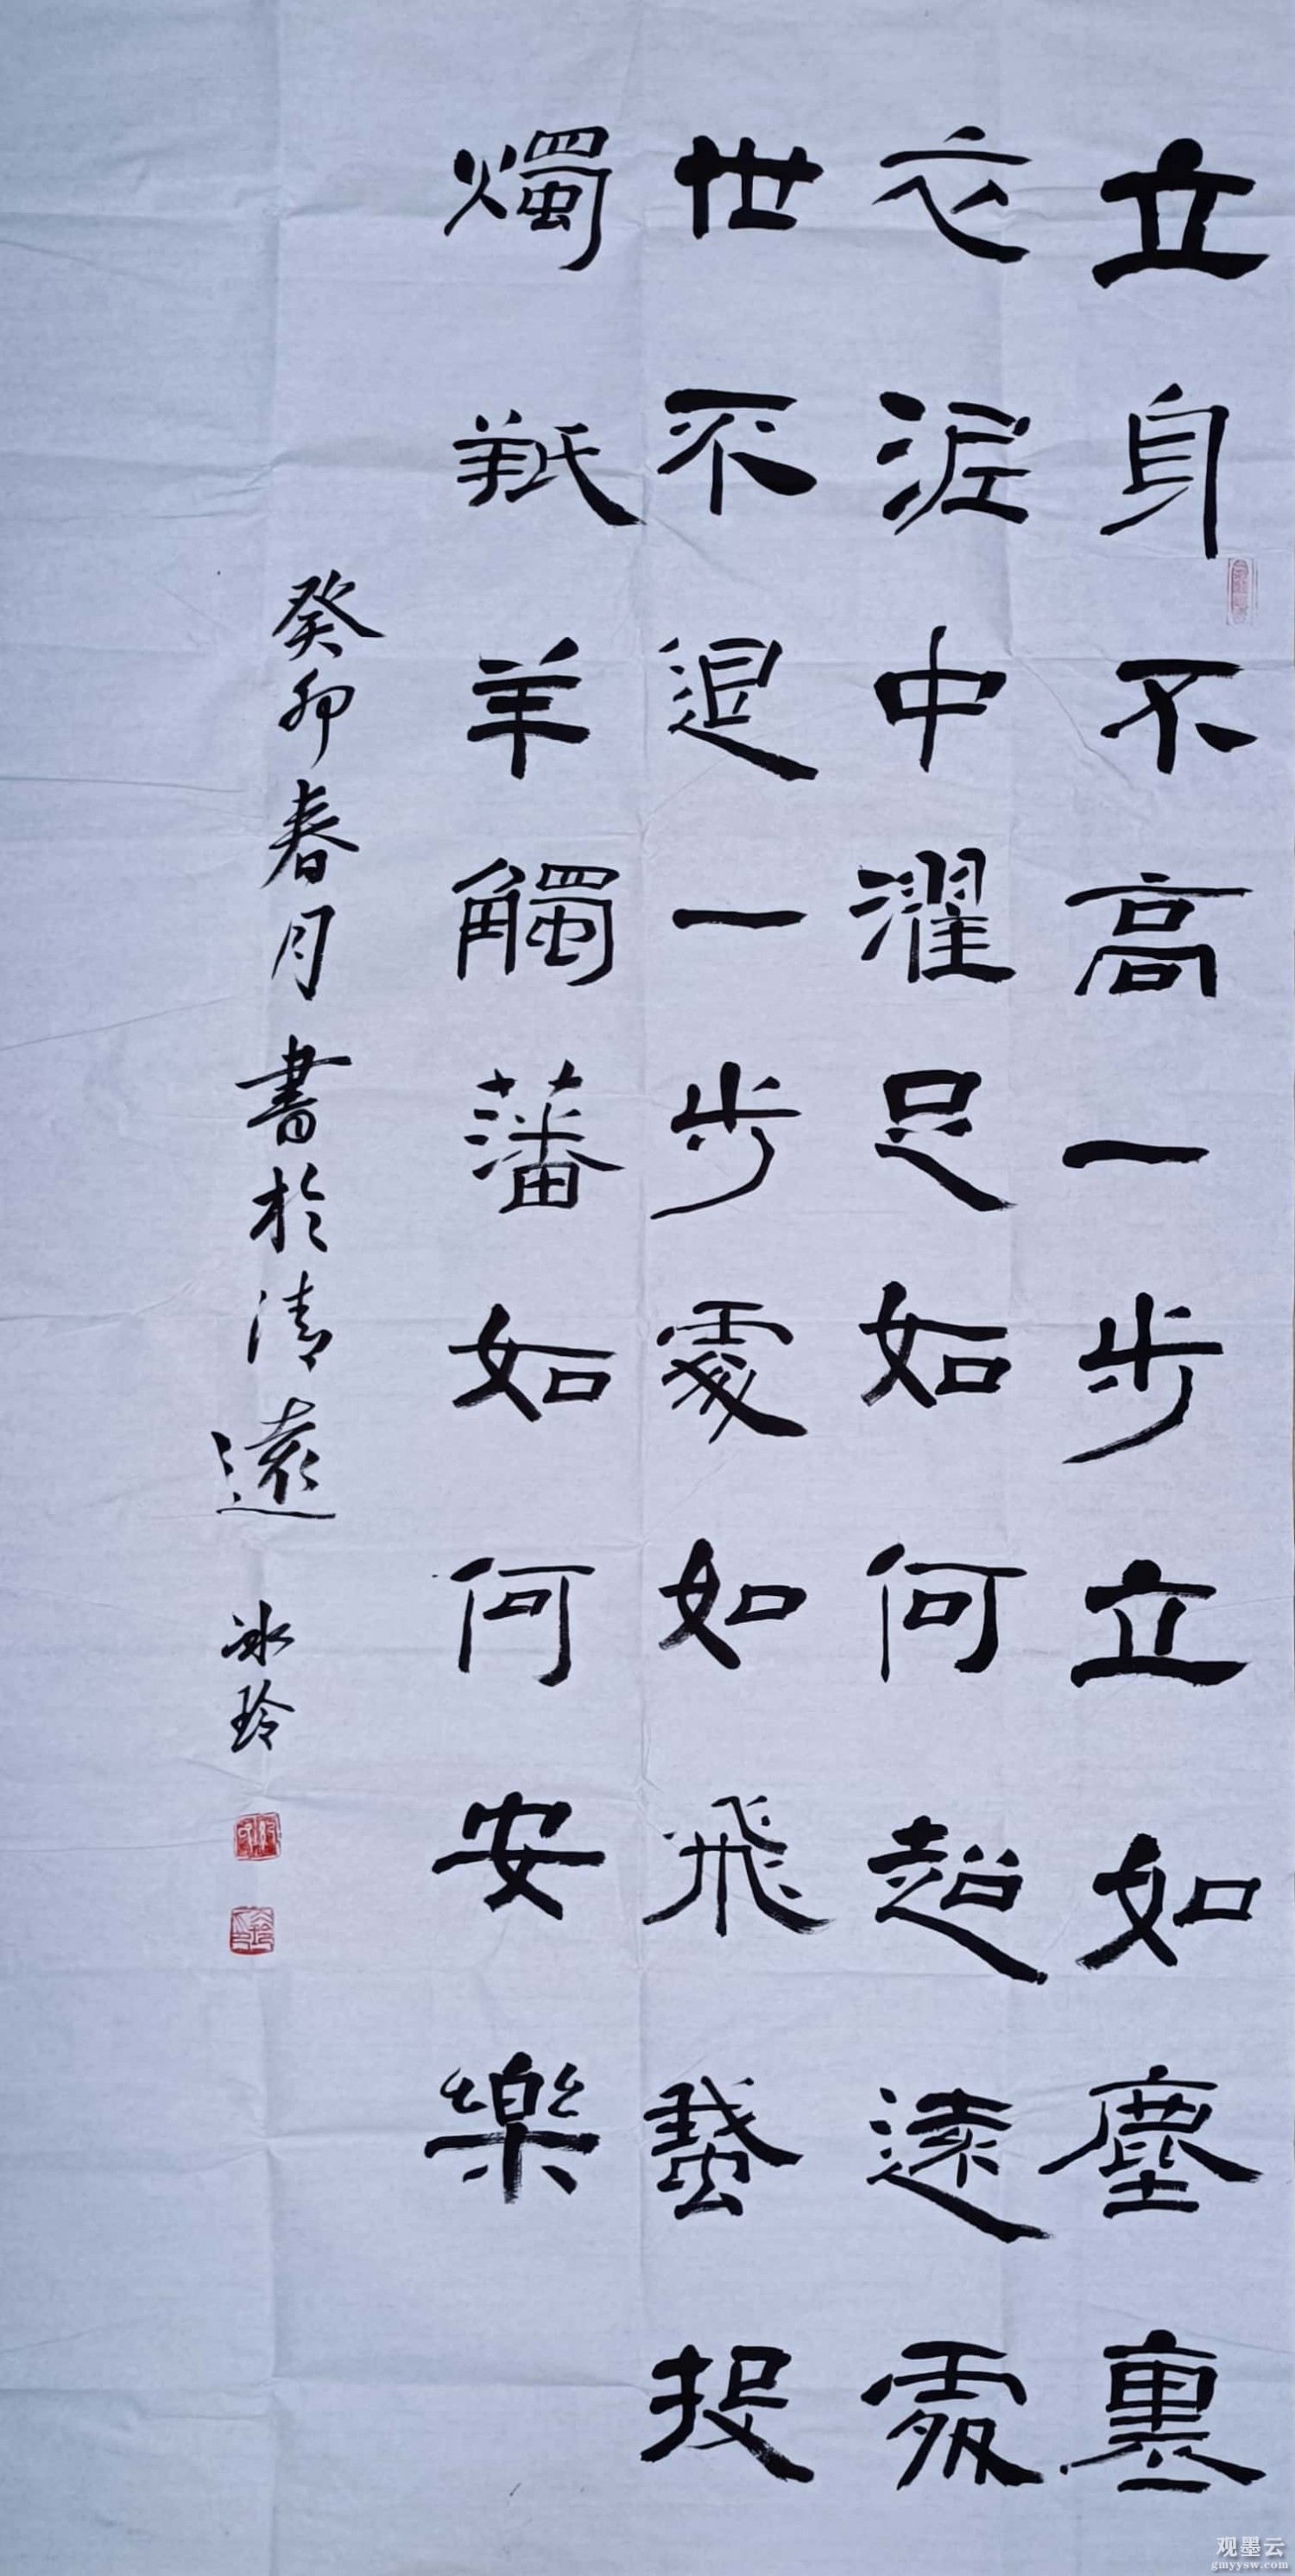 立身不高一步立如塵裏
衣泥中濯足如何超遠處
世不退一步處如飛蛾投
燭羝羊觸藩如何安樂
癸卯春月書於清遠 冰玲
观墨云
gmyysw.com